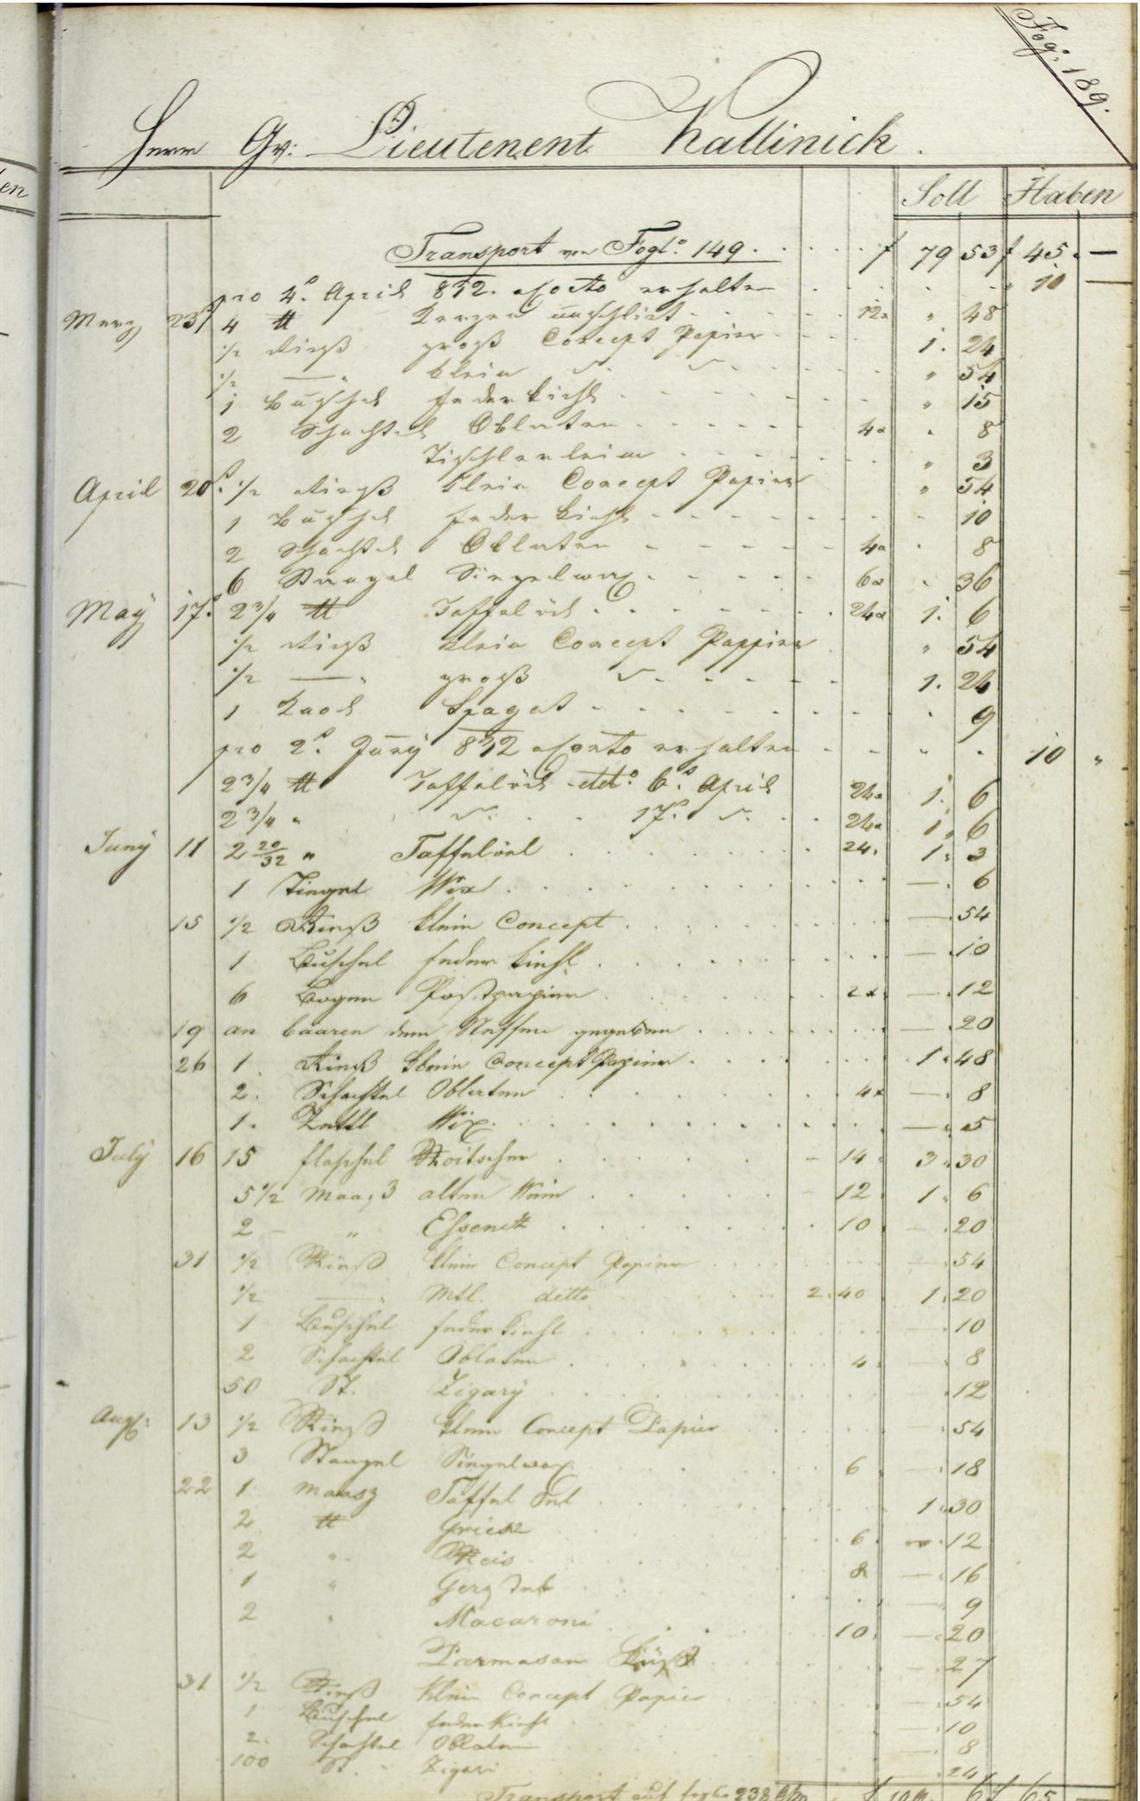 Fog: 189.
Herrn Gr: Lieutenent Kallinick.
Soll Haben
Transport von Foglo 149. f 79 53 f 45. —
pro 4t. April 832. a Conto erhalten " 10 —
Merz 23t 4 ℔ Kerzen unschlict 12x " 48
1/2 Rieß groß Concept Papier 1. 24
1/2 — " klein d. d. " 54
1 Büschel Federkiehl " 15
2 Schachtel Oblaten 4x " 8
Tischlerleim " 3
April 20t. 1/2 Rieß klein Concept Papier " 54
1 Büschel Federkiehl 10
2 Schachtel Oblaten 4x . 8
6 Stangel Siegelwax 6x . 36
May 17t. 2 3/4 ℔ Taffelöel 24x 1. 6
1/2 Rieß klein Concept Pappier " 54
1/2 — " groß d. 1. 24
1 Spagat . 9
pro 2t. Juny 832 a Conto erhalten 10 "
2 3/4 ℔ Taffelöel detto. 6t. April 24x 1. 6
2 3/4 " d. 17t. d. 24x 1. 6
Juny 11 2 20/32 " Taffelöel 24. 1. 3
1 Tiegel Wix — 6
15 1/2 Rieß klein Concept — 54
1 Buschel federkiehl — 10
6 Bogen Postpapier 2x — 12
19 an baaren dem Neffen gegeben — 20
26 1. Rieß klein Concept Papier 1. 48
2. Schachtel Oblaten 4x — 8
1. Zettl Wix. — 5
July 16 15 flaschel Roitscher 14 3. 30
5 1/2 Maas alten Wein 12 1. 6
2 — " 10 — 20
31 1/2 Rieß klein Concept Papier — 54
1/2 — " Mtl. detto 2.40 1. 20
1 Buschel federkiehl — 10
2 Schachtel Oblaten 4 — 8
50 St. Zigary — 12
Augt: 13 1/2 Rieß klein Concept Papier — 54
3 Stangel Siegelwax 6 — 18
22 1 Maasz Taffel Oel 1. 30
2 ℔ Griesz 6. — 12
2 " Reis 8 — 16
1 " Gerstel — 9
2 " Macaroni 10. — 20
Parmasan Käß — 27
31 1/2 Rieß klein Concept Papier — 54
1 Buschel federkiehl — 10
2. Schachtel Oblaten — 8
100 St. Zigari — 24
Transport auf foglo 238 f 65